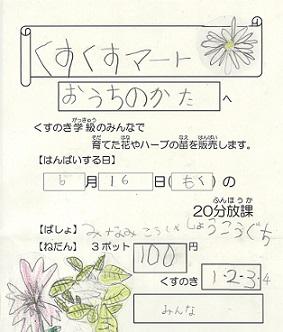 くすくすマート
おうちのかた へ
くすのき学級のみんなで
育てた花やハーブの苗を販売します。
【はんばいする日】
6月16日(もく)の
20分放課
【ばしょ】みなみこうしゃ しょうこうぐち
【ねだん】 3ポット 100 円
くすのき 1・2・3・4
みんな